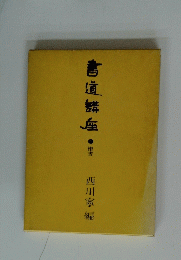 書道講座
西川寧編